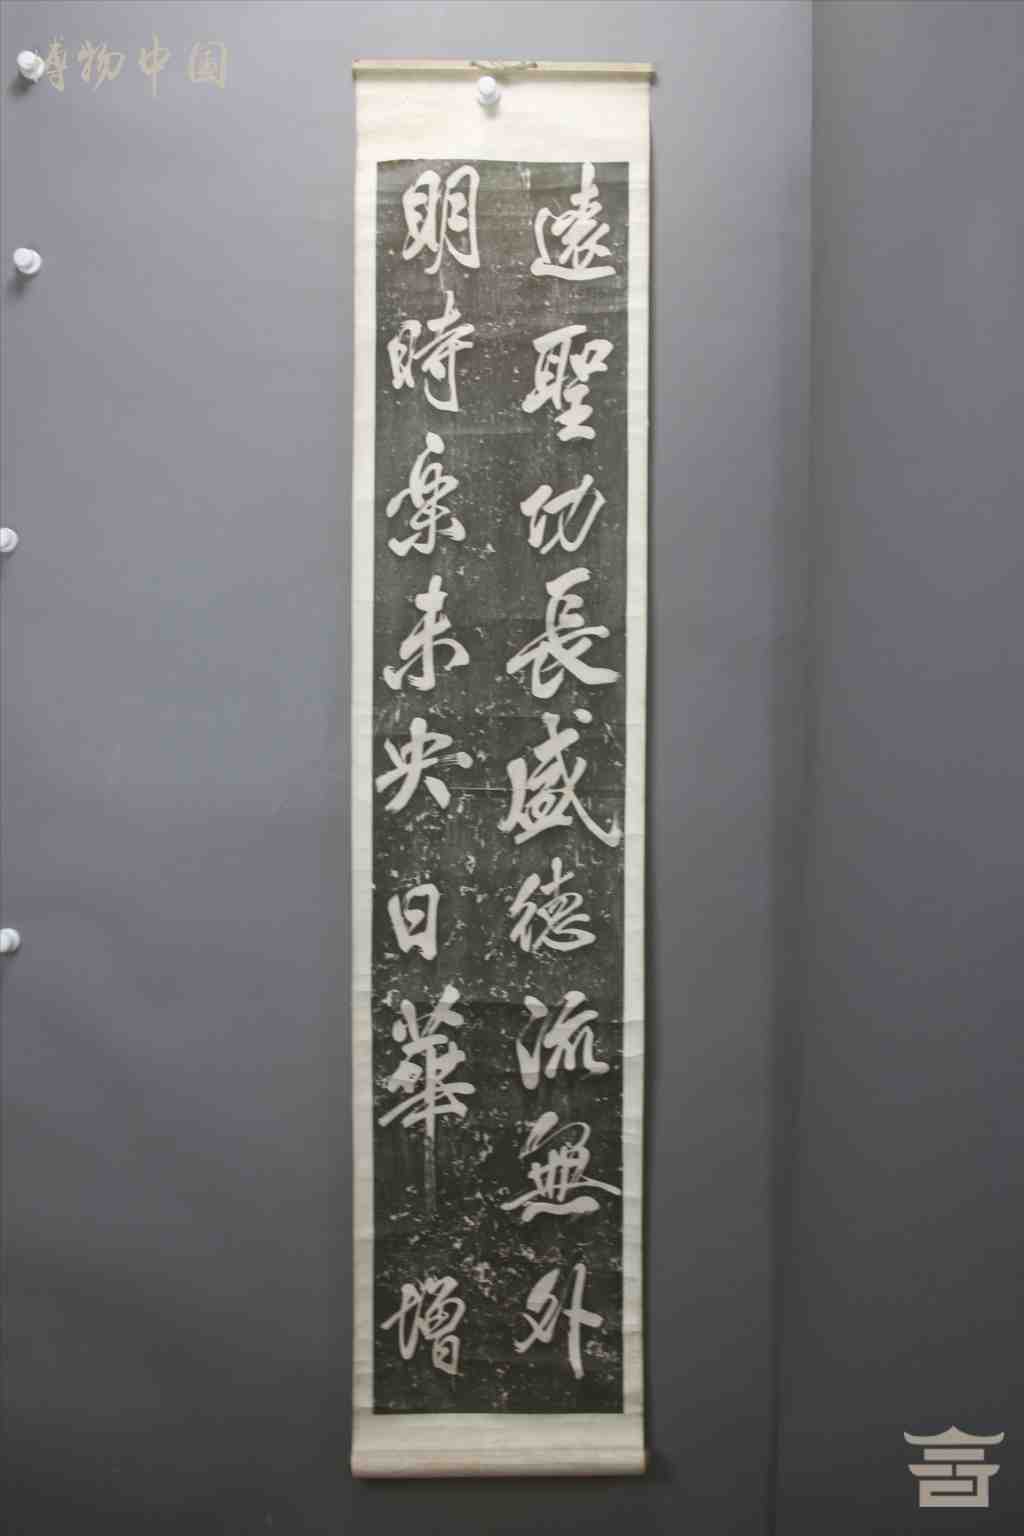 遠聖功長盛德流無外
明時樂未央日華增
博物中国